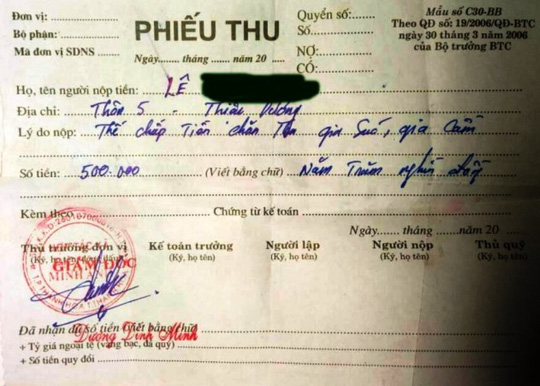 Đơn vị:
Bộ phận:
Mã đơn vị SDNS
PHIẾU THU
Ngày...... tháng...... năm 20......
Quyển số:
Số:
NỢ:
CÓ:
Mẫu số C30-BB
Theo QĐ số: 19/2006/QĐ-BTC
ngày 30 tháng 3 năm 2006
của Bộ trưởng BTC
Họ, tên người nộp tiền: LÊ
Địa chỉ: Thôn 5 - Thiệu Dương
Lý do nộp: Thế chấp Tiền chăn gia Súc, gia Cầm
Số tiền: 500.000 (Viết bằng chữ) Năm Trăm nghìn đồng
Kèm theo Chứng từ kế toán
Ngày...... tháng...... năm 20......
Thủ trưởng đơn vị Kế toán trưởng Người lập Người nộp Thủ quỹ
(Ký, họ tên) (Ký, họ tên) (Ký, họ tên) (Ký, họ tên)
GIÁM ĐỐC
Đã nhận đủ số tiền (Viết bằng chữ)
Dương Đình Minh
+ Tỷ giá ngoại tệ (vàng bạc, đá quý)
+ Số tiền quy đổi